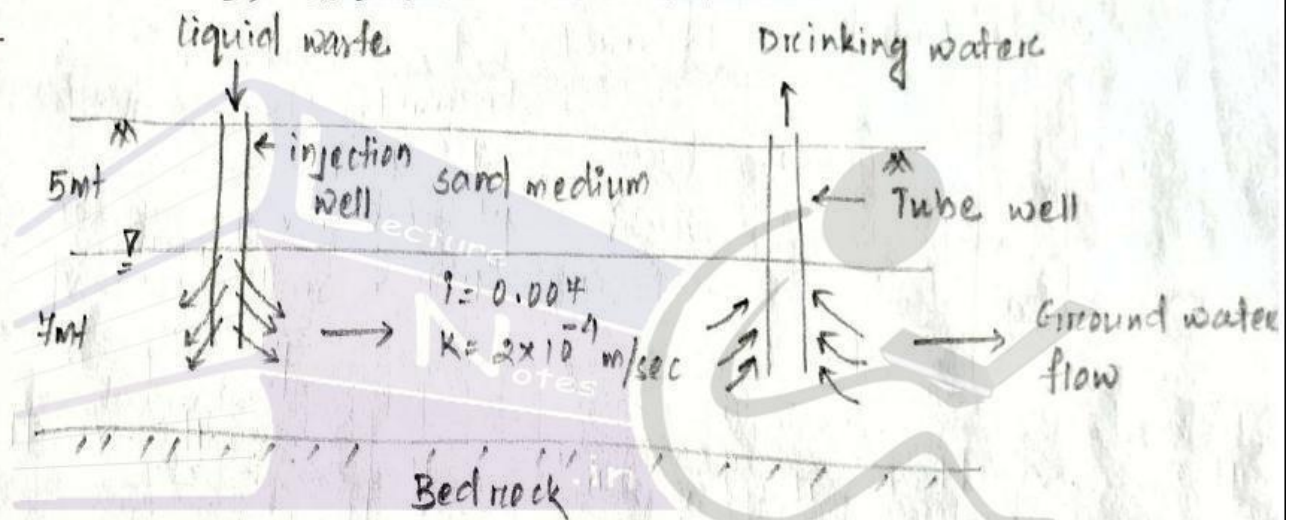 liquid waste
Drinking water
5mt
← injection well
sand medium
← Tube well
i = 0.004
K = 2×10⁻⁴ m/sec
7mt
Ground water flow
Bed rock
Lecture
Notes
.in